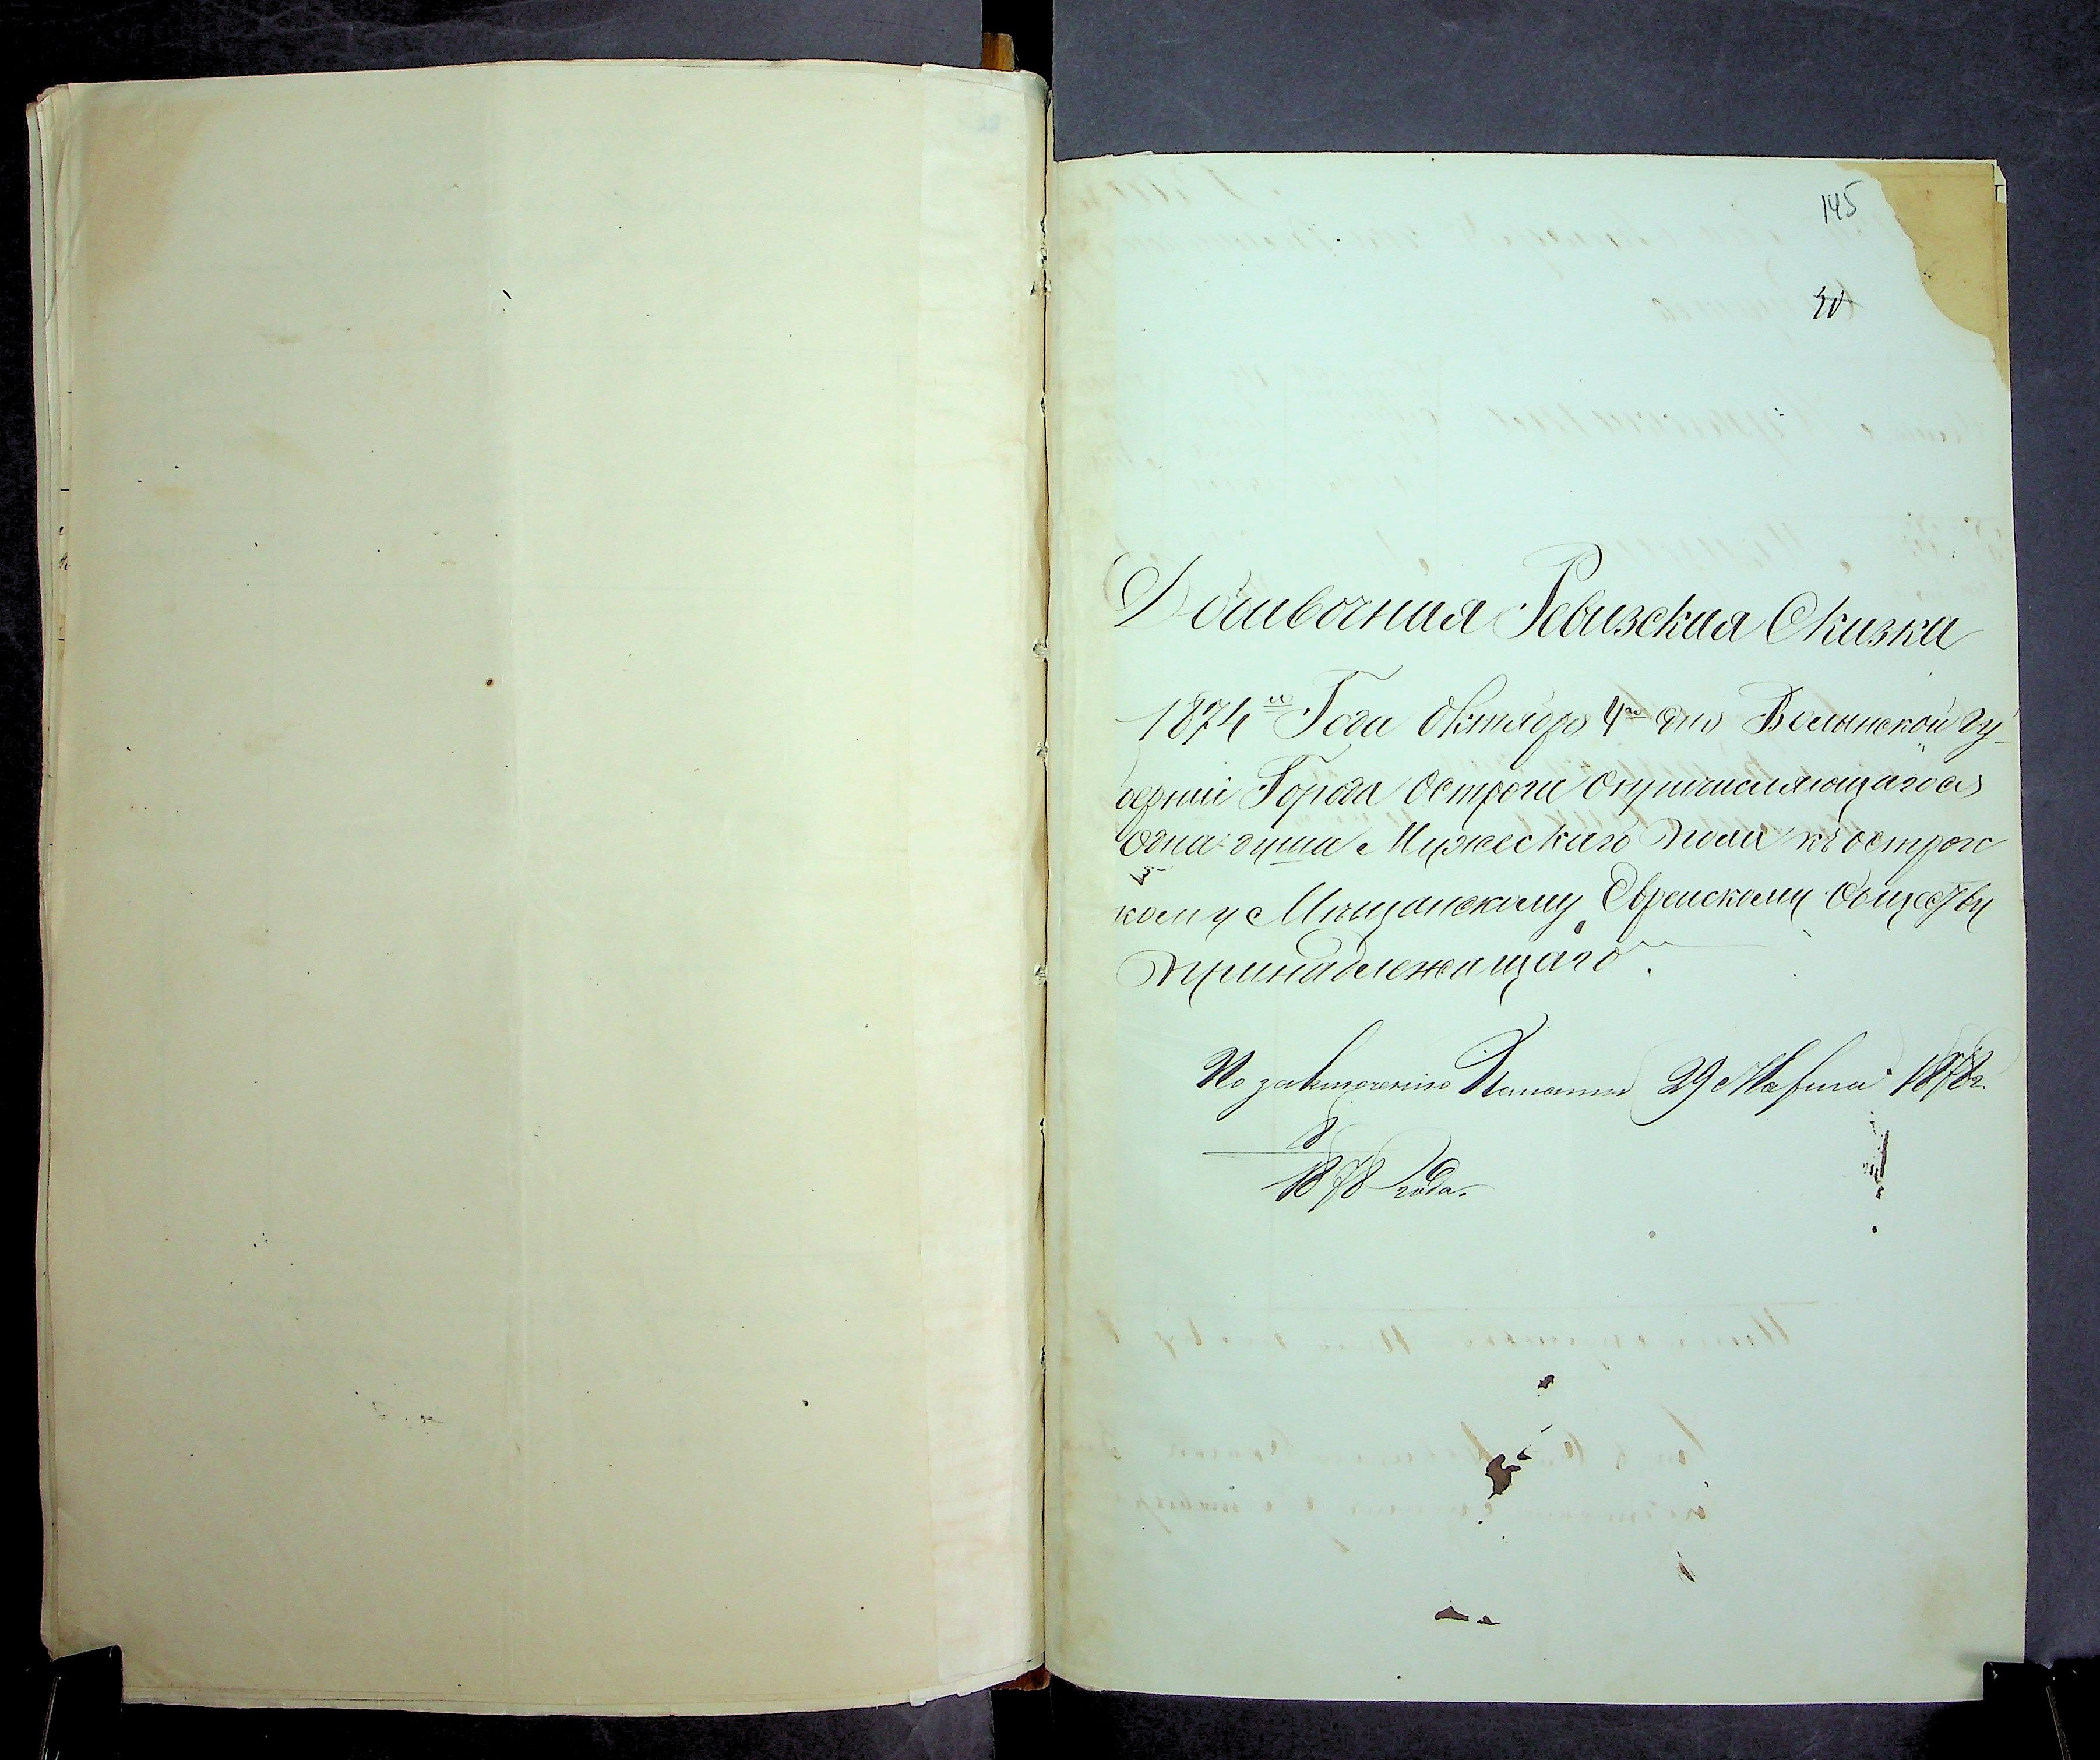 145
40
Добавочная Ревизская Сказка
1874го Года Октября 4го дня Волынской гу-
берніи Города Острога Опричисляющагося
Одна душа Мужескаго пола къ острож
кому Мѣщанскому Еврейскому Обществу
принадлежащаго.
По заключенію Палаты 29 Марта 1878 г.
8
1878 года.